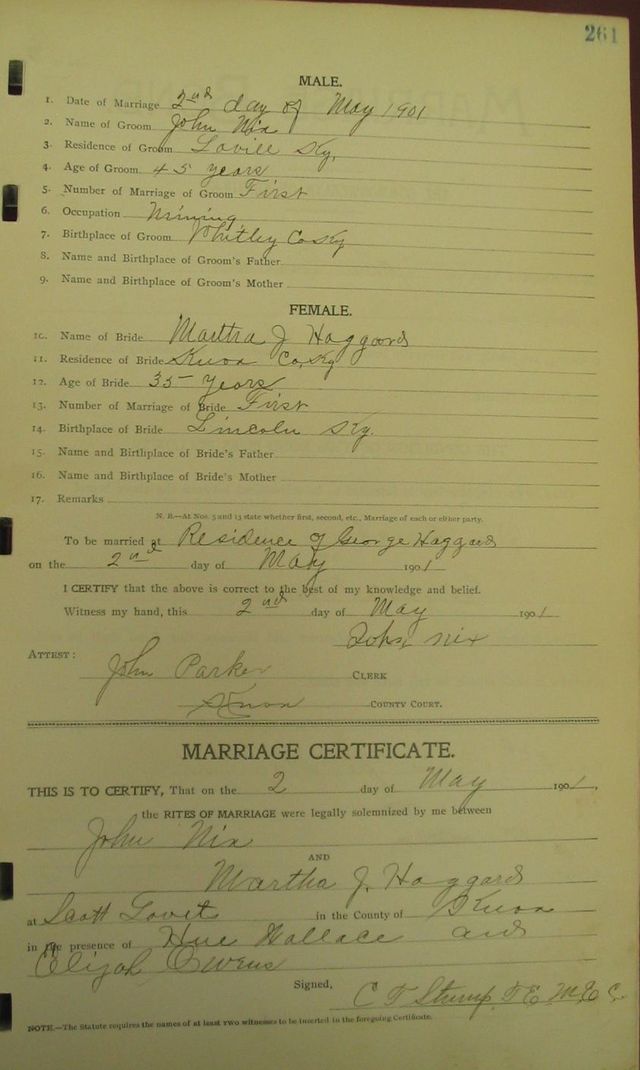 261
MALE.
1. Date of Marriage 2nd day of May 1901
2. Name of Groom John Nix
3. Residence of Groom Lovill Ky,
4. Age of Groom 45 years
5. Number of Marriage of Groom First
6. Occupation Mining
7. Birthplace of Groom Whitley Co Ky
8. Name and Birthplace of Groom's Father
9. Name and Birthplace of Groom's Mother
FEMALE.
10. Name of Bride Martha J Haggard
11. Residence of Bride Knox Co, Ky
12. Age of Bride 35 years
13. Number of Marriage of Bride First
14. Birthplace of Bride Lincoln Ky.
15. Name and Birthplace of Bride's Father
16. Name and Birthplace of Bride's Mother
17. Remarks
N. B.—At Nos. 5 and 13 state whether first, second, etc., Marriage of each or either party.
To be married at Residence of George Haggard
on the 2nd day of May 1901
I CERTIFY that the above is correct to the best of my knowledge and belief.
Witness my hand, this 2nd day of May 1901
John Nix
ATTEST:
John Parker CLERK
Knox COUNTY COURT.
MARRIAGE CERTIFICATE.
THIS IS TO CERTIFY, That on the 2 day of May 1901,
the RITES OF MARRIAGE were legally solemnized by me between
John Nix
AND
Martha J. Haggard
at Scott Tovit in the County of Knox
in the presence of Hue Wallace and
Elijah Owens
Signed, C T Stump T.E. M.E C.
NOTE.—The Statute requires the names of at least two witnesses to be inserted in the foregoing Certificate.